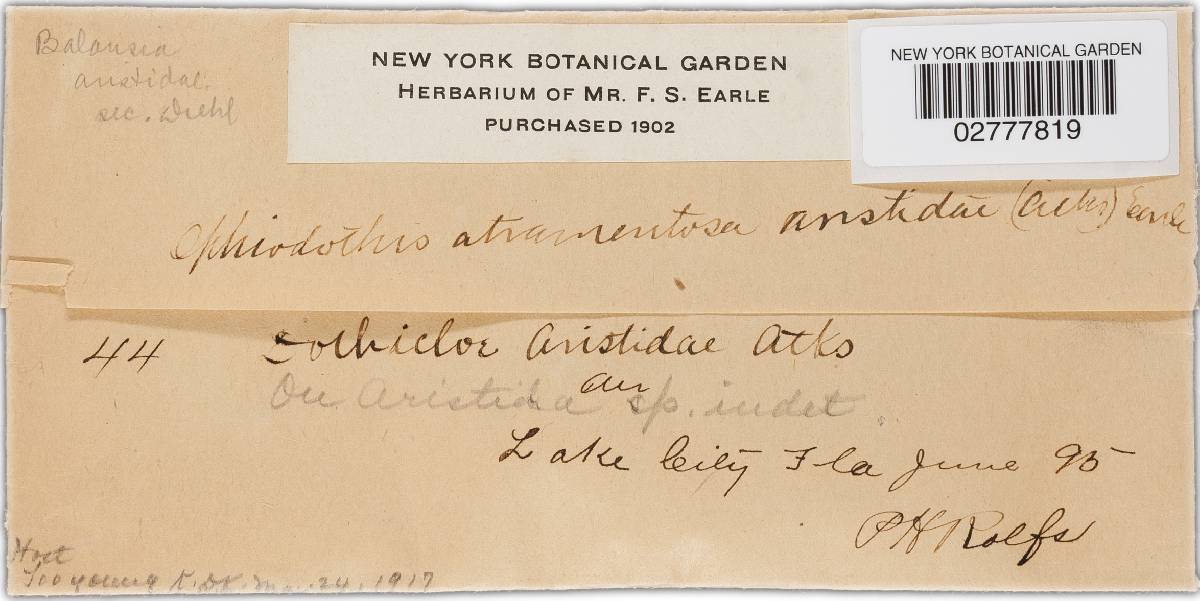 Balansia
aristidae.
sec. Diehl
NEW YORK BOTANICAL GARDEN
HERBARIUM OF MR. F. S. EARLE
PURCHASED 1902
NEW YORK BOTANICAL GARDEN
02777819
Ophiodothis atramentosa aristidae (Atks) Earle
44 Dothicloe Aristidae Atks
On Aristida sp. indet.
Lake City Fla June 95
P H Rolfs
Host
Too young 24, 1917